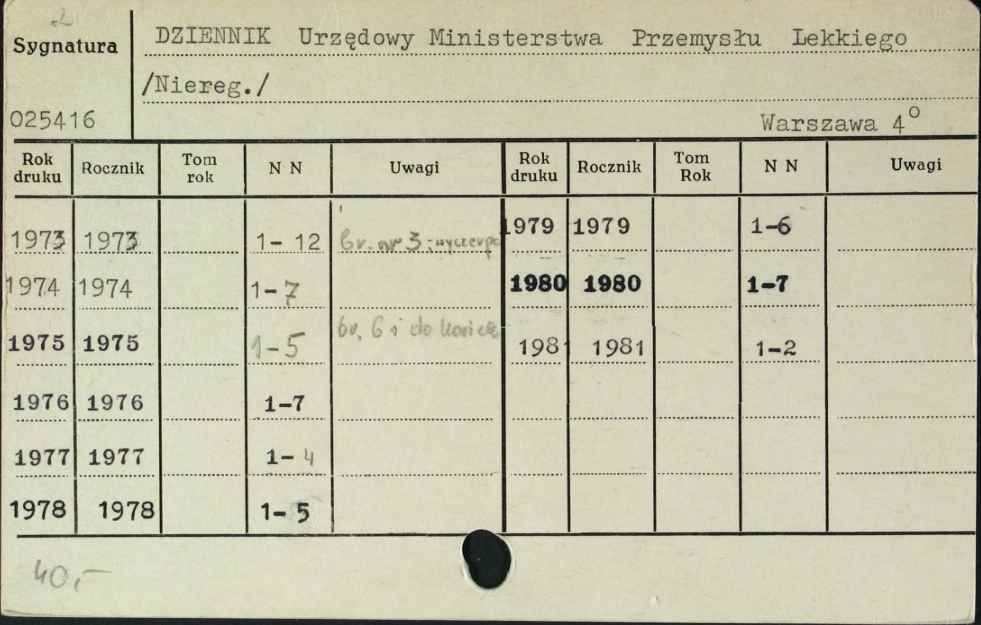 Sygnatura
DZIENNIK Urzędowy Ministerstwa Przemysłu Lekkiego
/Niereg./
025416
Warszawa 4°
Rok druku Rocznik Tom rok N N Uwagi Rok druku Rocznik Tom Rok N N Uwagi
1973 1973 1- 12 br. nr 3 : wyczerp 1979 1979 1-6
1974 1974 1-7 1980 1980 1-7
1975 1975 1-5 br. 6 i do końca 1981 1981 1-2
1976 1976 1-7
1977 1977 1- 4
1978 1978 1- 5
40,-